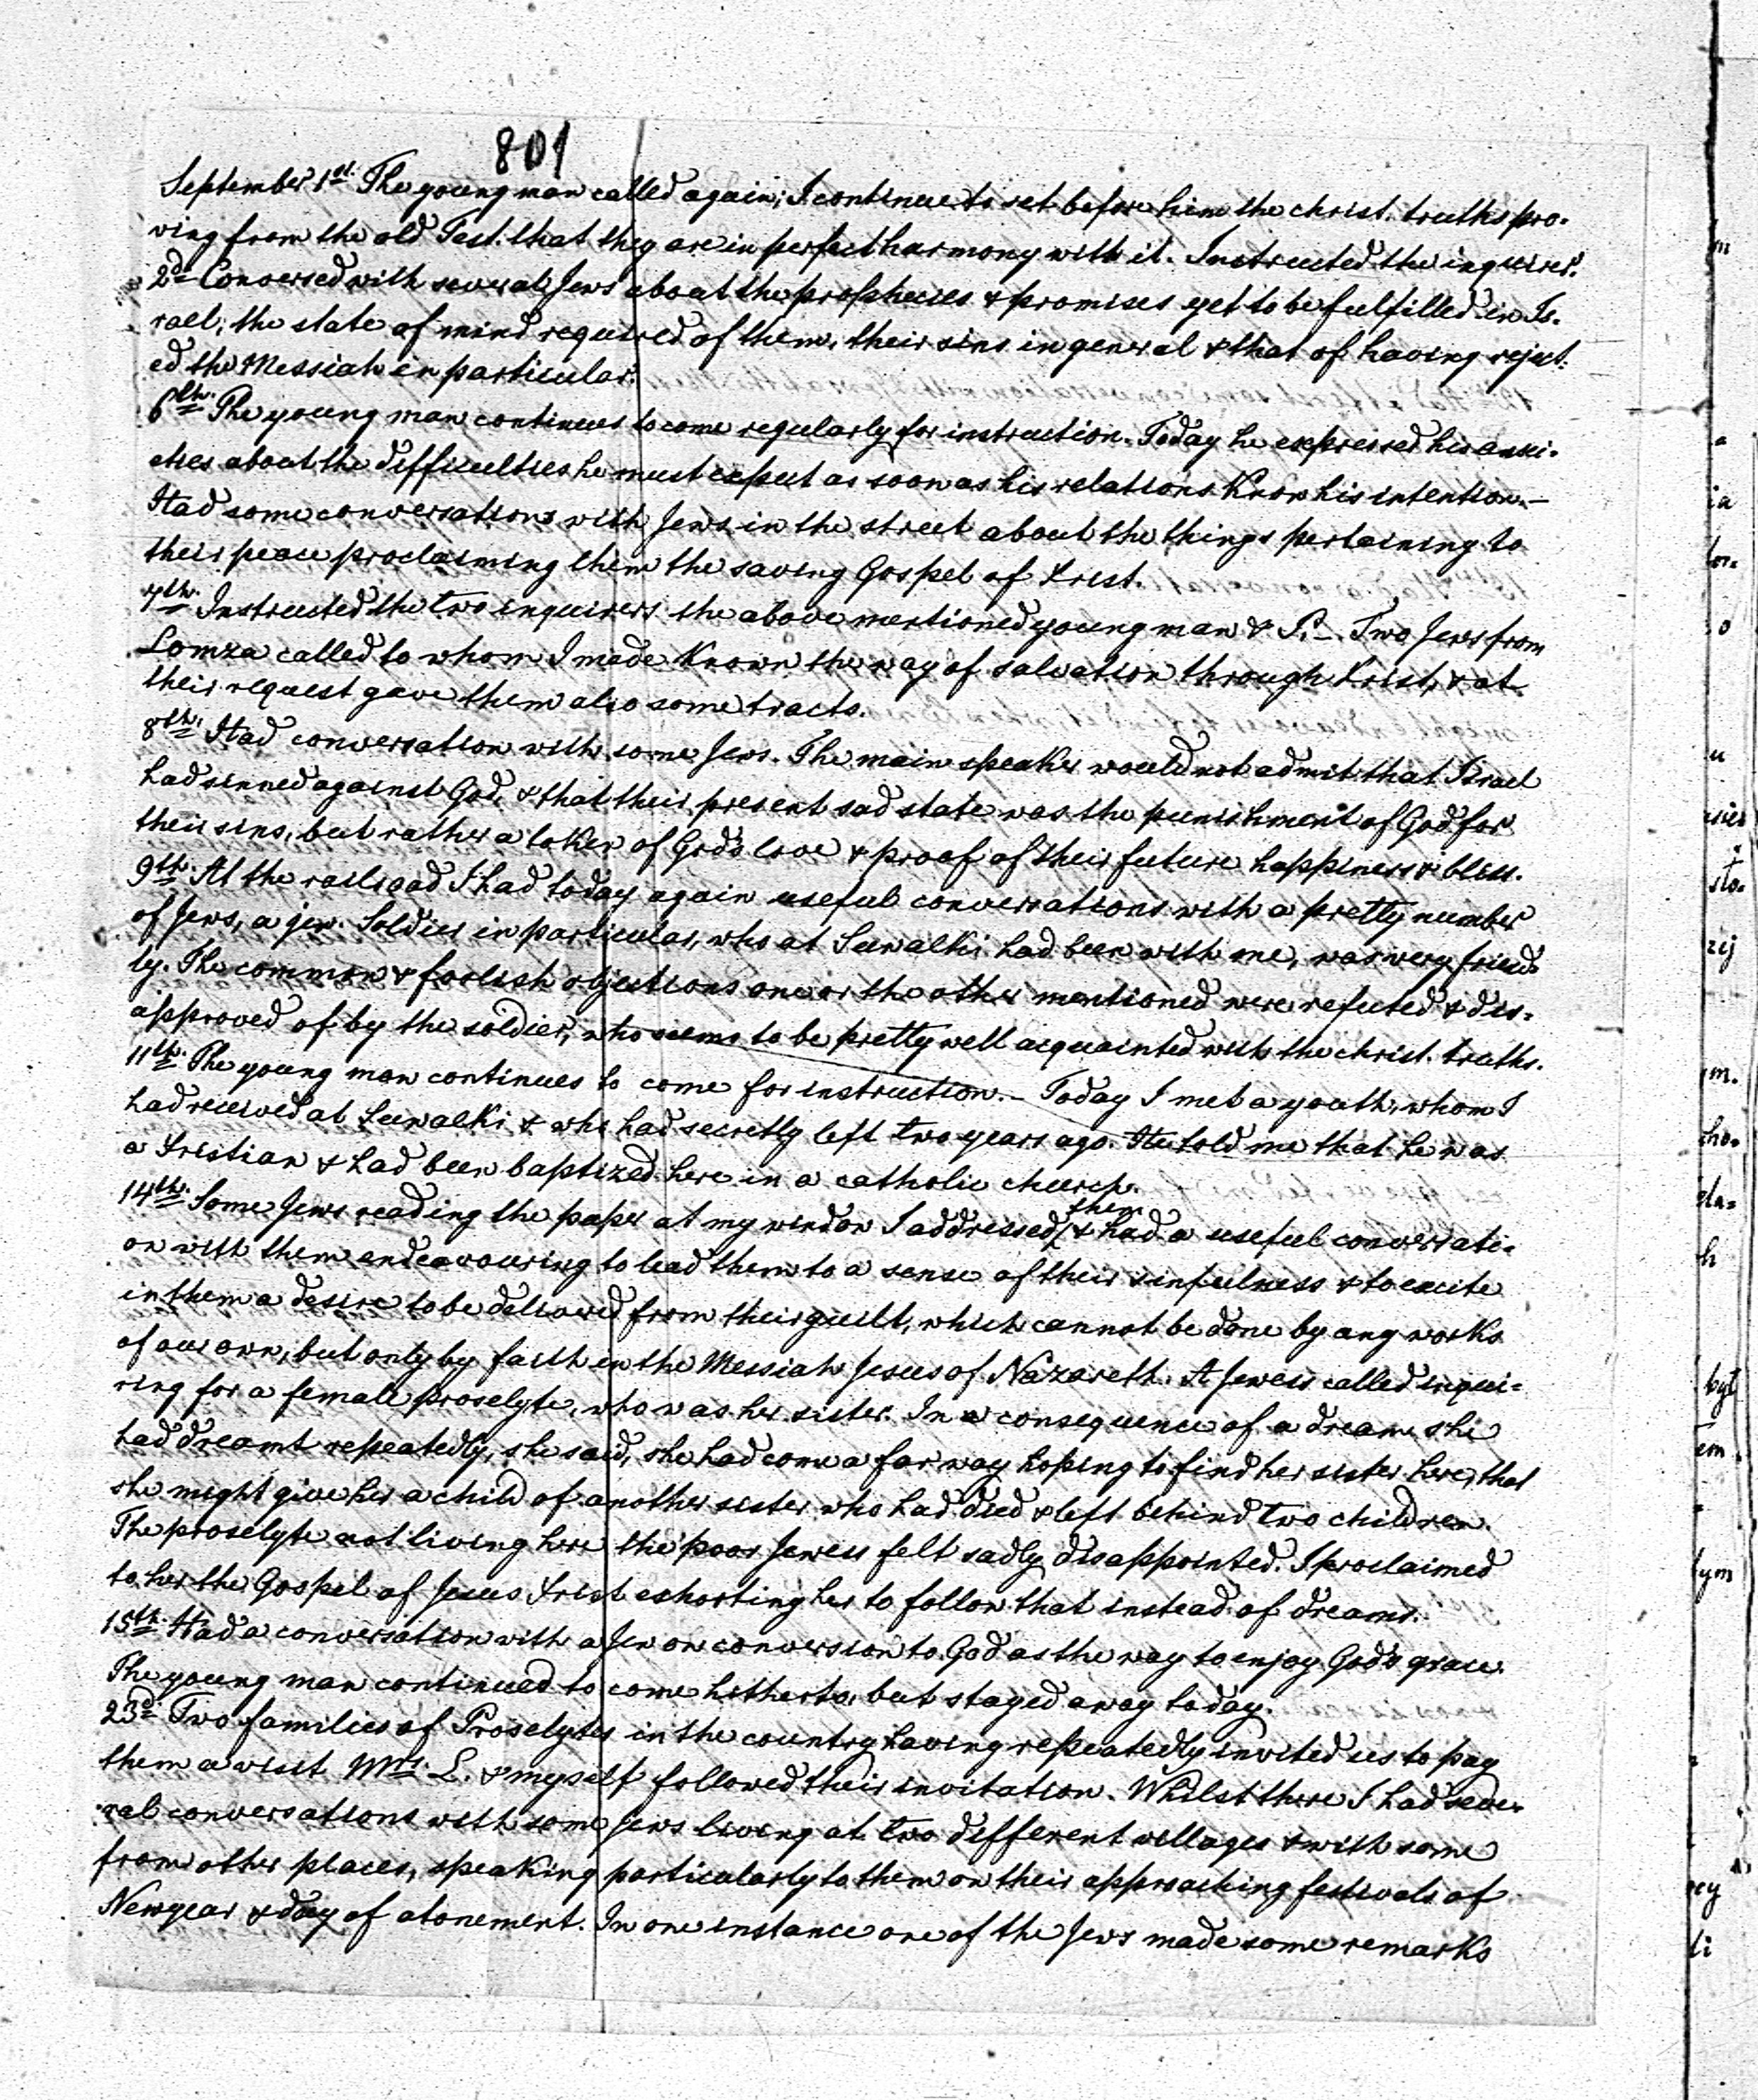 801
September 1st. The young man called again; I continue to set before him the christ. truths pro-
ving from the old Test. that they are in perfect harmony with it. Instructed the inquirer.
2d Conversed with several Jews about the prophecies & promises yet to be fulfilled in Is-
rael; the state of mind required of them, their sins in general & that of having reject-
ed the Messiah in particular.
6th. The young man continues to come regularly for instruction. Today he expressed his anxi-
eties about the difficulties he must expect as soon as his relations Know his intention.—
Had some conversations with Jews in the street about the things pertaining to
their peace proclaiming them the saving Gospel of Xrist.
7th. Instructed the two inquirers the above mentioned young man & P.—. Two Jews from
Lomza called to whom I made Known the way of salvation through Xrist, & at
their request gave them also some tracts.
8th. Had conversation with some Jews. The main speaker would not admit that Israel
had sinned against God, & that their present sad state was the punishment of God for
their sins, but rather a token of God's love & proof of their future happiness & bless.
9th. At the railroad I had today again useful conversations with a pretty number
of Jews, a jew. Soldier in particular, who at Suwalki had been with me, was very friend-
ly. The common & foolish objections one or the other mentioned were refuted & dis-
approved of by the soldier, who seems to be pretty well acquainted with the christ. truths.
11th. The young man continues to come for instruction.— Today I met a youth, whom I
had received at Suwalki & who had secretly left two years ago. He told me that he was
a Xristian & had been baptized here in a catholic church.
14th. Some Jews reading the paper at my window I addressed them & had a useful conversati-
on with them endeavouring to lead them to a sense of their sinfulness & to excite
in them a desire to be delivered from their guilt, which cannot be done by any works
of our own, but only by faith in the Messiah Jesus of Nazareth. A Jewess called inqui-
ring for a female proselyte, who was her sister. In consequence of a dream she
had dreamt repeatedly, she said, she had come a far way hoping to find her sister here, that
she might give her a child of another sister who had died & left behind two children.
The proselyte not living here the poor Jewess felt sadly disappointed. I proclaimed
to her the Gospel of Jesus Xrist exhorting her to follow that instead of dreams.
15th. Had a conversation with a Jew on conversion to God as the way to enjoy God's grace.
The young man continued to come hitherto, but stayed away today.
23d Two families of Proselytes in the country having repeatedly invited us to pay
them a visit Mrs. L. & myself followed their invitation. Whilst there I had seve-
ral conversations with some Jews living at two different villages & with some
from other places, speaking particularly to them on their approaching festivals of
Newyear & day of atonement. In one instance one of the Jews made some remarks